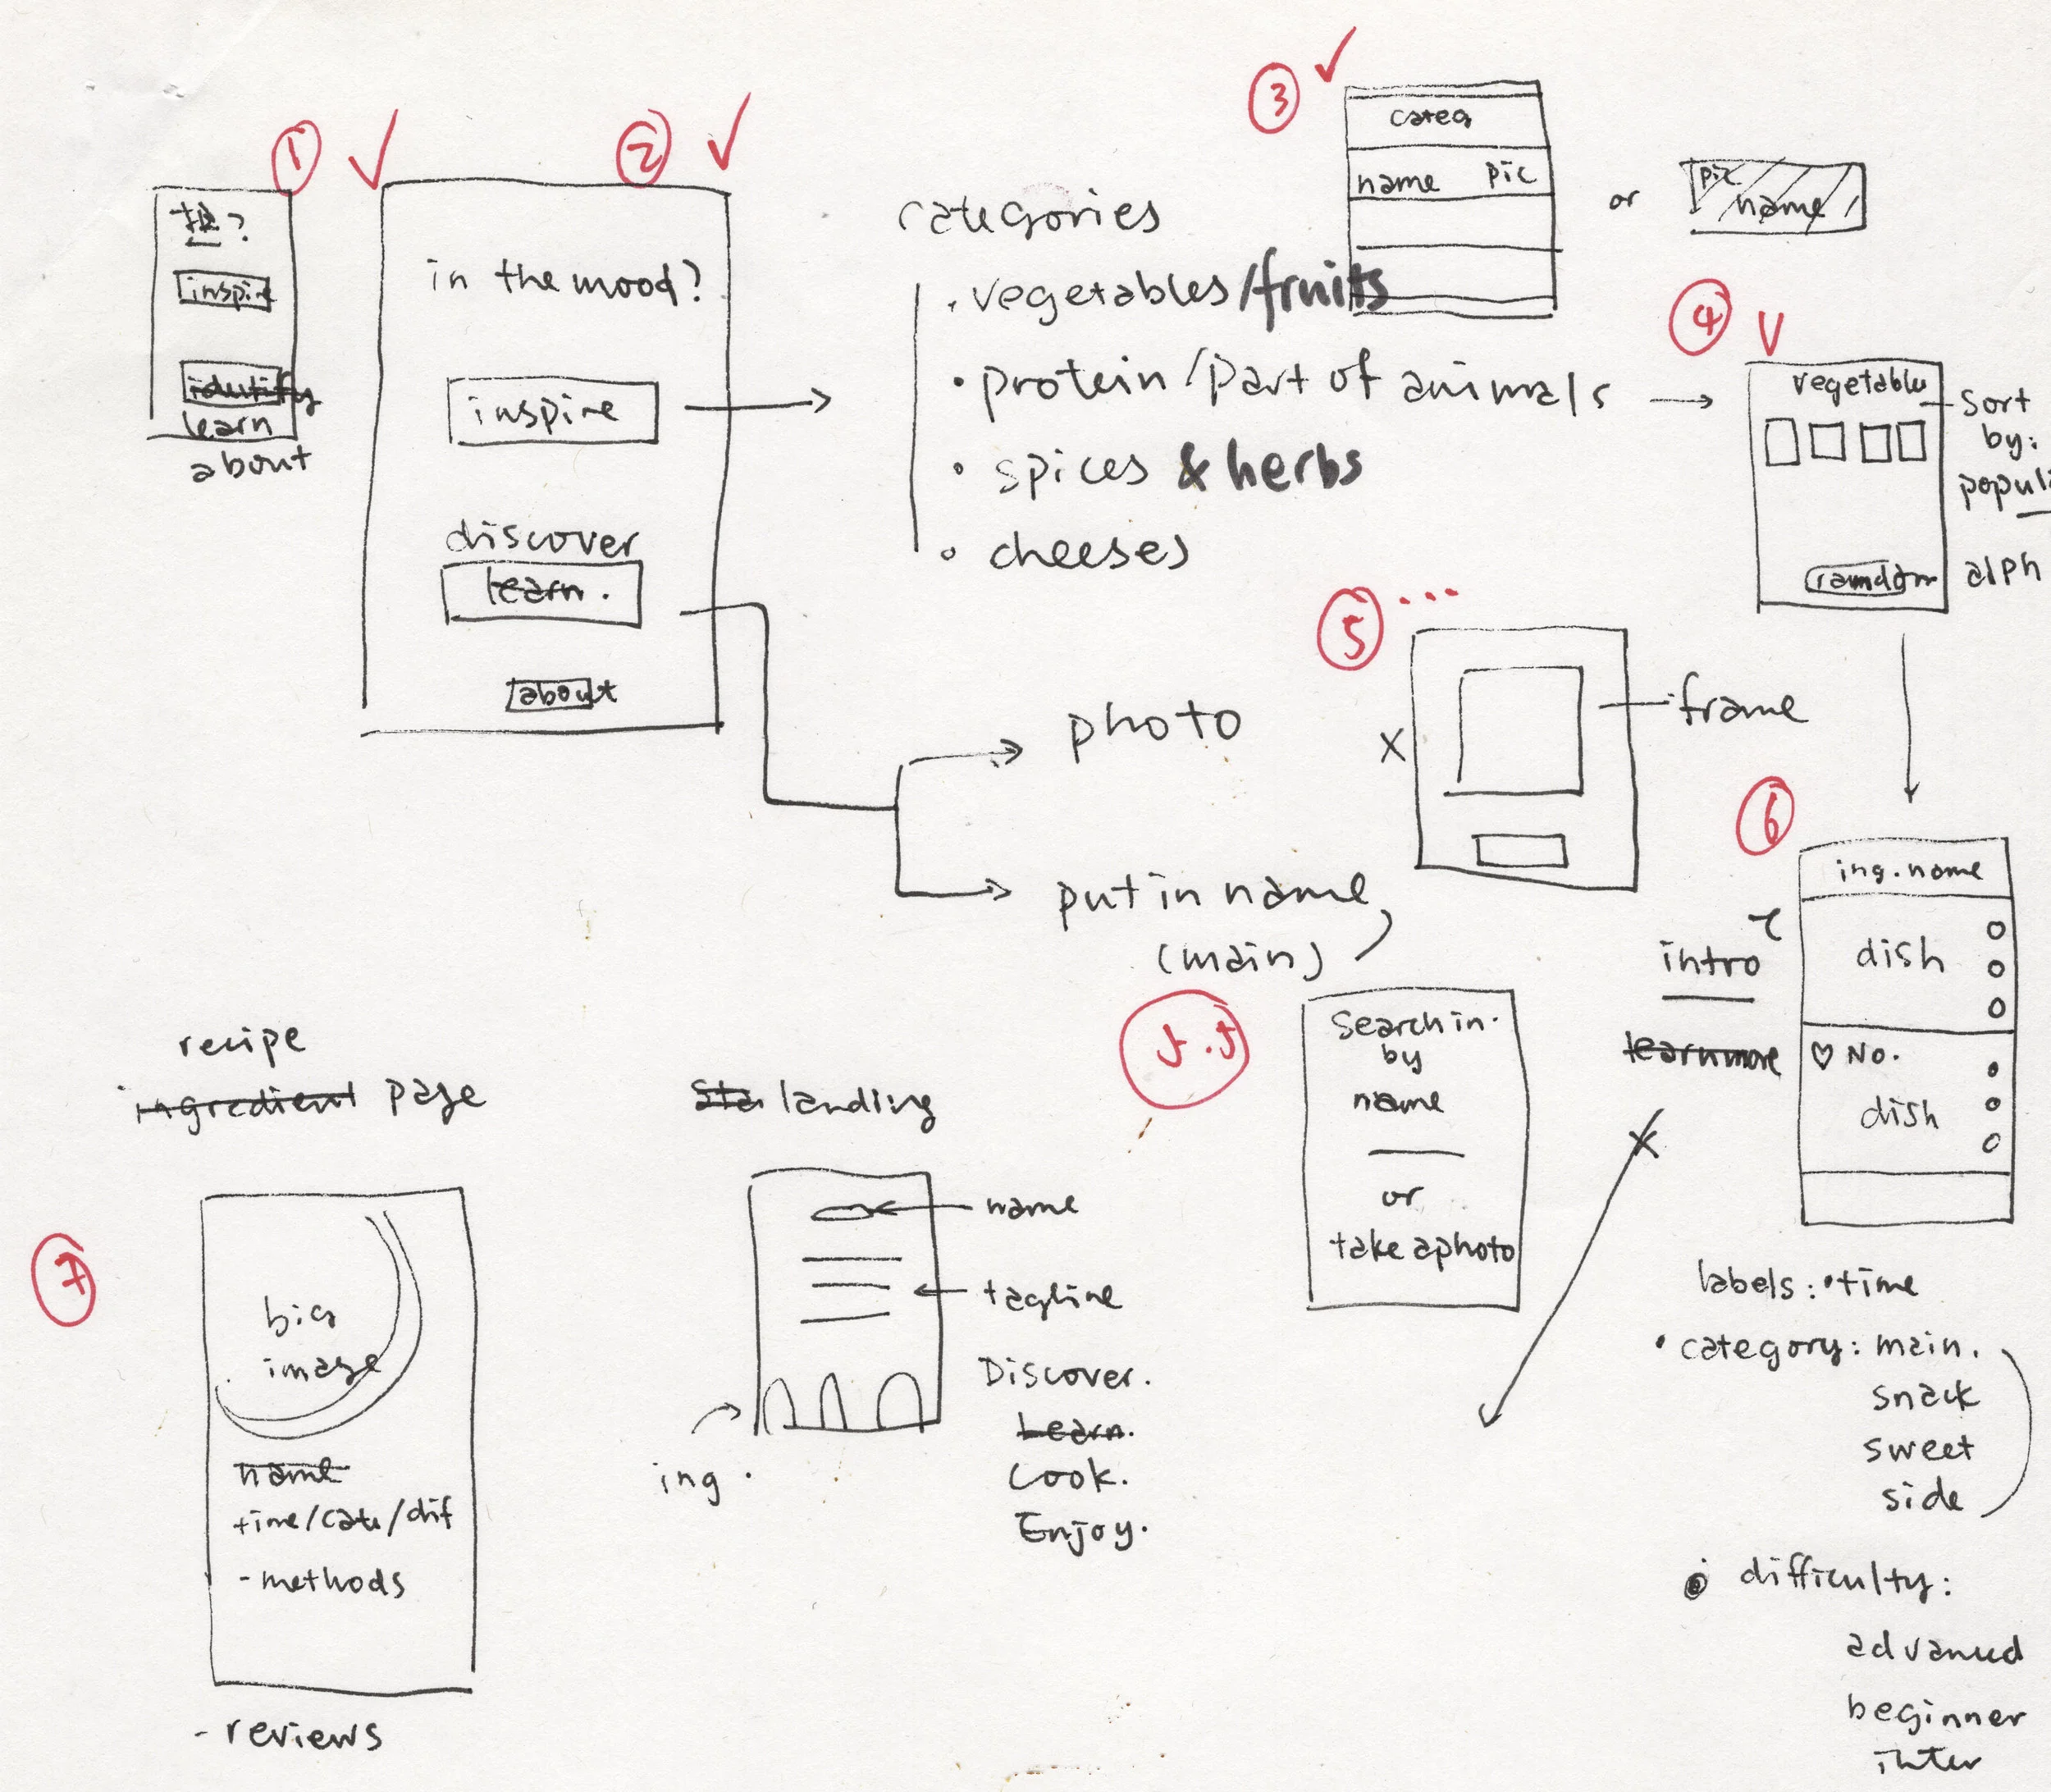 ①
?
inspire
identify
learn
about
②
in the mood?
inspire
discover
learn.
about
categories
· vegetables/fruits
• protein/part of animals
• spices & herbs
• cheeses
③
categ
name pic
or
pic
name
④
vegetable
ramdom
Sort
by:
alph
photo
put in name
(main)
⑤ ...
frame
X
5.5
Search in.
by
name
or
take a photo
⑥
ing. name
dish
♡ No.
dish
intro
learn more
labels: • time
• category: main.
snack
sweet
side
• difficulty:
advanced
beginner
inter
recipe
ingredient page
⑦
big
image
name
time/cate/dif
- methods
- reviews
landing
name
tagline
ing.
Discover.
Learn.
Cook.
Enjoy.